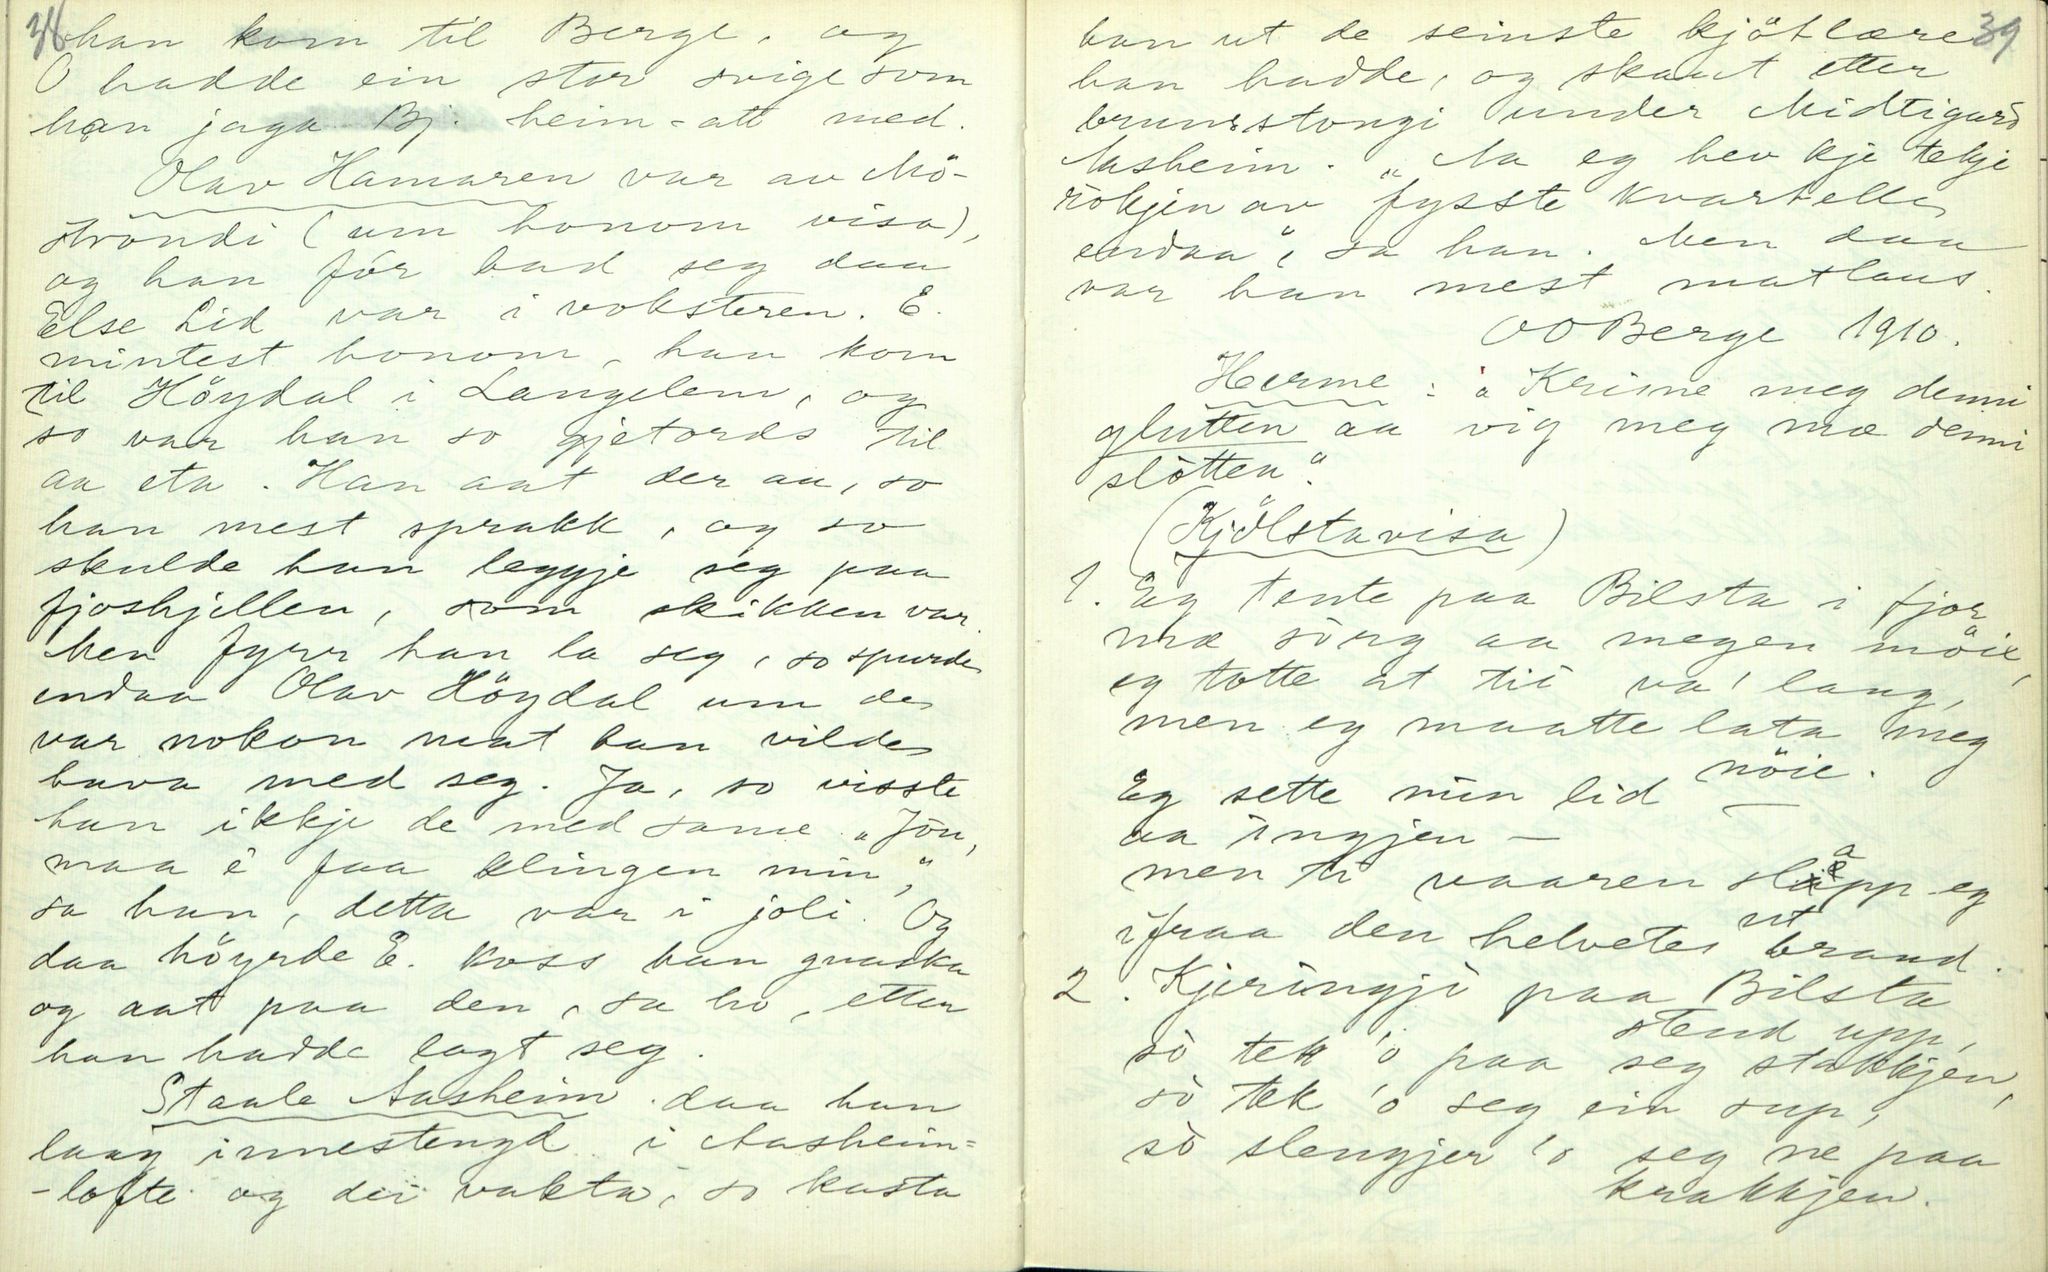 38 han kom til Berge, og
O hadde ein stor svige som
han jaga Bj. heim-att med.
Olav Hamaren var av Mö-
ströndi (um honom visa),
og han fór bad seg daa
Else Lid var i voksteren. E.
mintest honom, han kom
til Höydal i Langelem, og
so var han so gjetords til
aa eta. Han aat der au, so
han mest sprakk, og so
skulde han leggje seg paa
fjoshjellen, som skikken var.
Men fyrr han la seg, so spurde
endaa Olav Höydal um de
var nokon mat han vilde
hava med seg. Ja, so visste
han ikkje de med same. "Jön,
maa é faa klingen min",
sa han, detta var i joli. Og
daa höyrde E. koss han gnaska
og aat paa den, sa ho, etter
han hadde lagt seg.
Staale Aasheim daa han
laag innestengd i Aasheim-
-lofte og dei vakta, so kasta
39
han ut de seinste kjötlære
han hadde, og skaut etter
brunsstongi under Midtigard
Aasheim. "Aa eg hev kje tekje
rókjen av fysste kvartelle
endaa", sa han. Men daa
var han mest matlaus.
OO Berge 1910.
Herme: "Krisne meg denni
glutten aa vig meg mæ denni
slötten".
(Kjölstavisa)
1. Eg tente paa Bilsta i fjor
mæ sörg aa megen möie,
eg totte at tii va' lang,
men eg maatte lata meg
nöie.
Eg sette min lid
aa ingjen —
men ti vaaren slapp eg
ifraa den helvetes ut
brand.
2. Kjeringji paa Bilsta
stend upp,
sò tek 'o paa seg stakkjen,
sò tek 'o seg ein sup,
sò slengjer 'o seg ne paa
krakkjen.